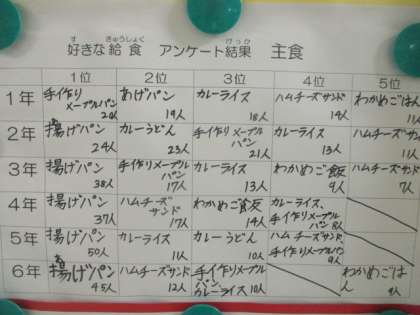 好きな給食 アンケート結果 主食
1位 2位 3位 4位 5位
1年 手作りメープルパン 20人 あげパン 19人 カレーライス 18人 ハムチーズサンド 14人 わかめごはん 11人
2年 揚げパン 24人 カレーうどん 23人 手作りメープルパン 21人 カレーライス 13人 ハムチーズサンド 11人
3年 揚げパン 38人 手作りメープルパン 17人 カレーライス 13人 わかめご飯 9人 ハムチーズサンド 7人
4年 揚げパン 37人 ハムチーズサンド 17人 わかめご飯 14人 カレーライス、手作りメープルパン 8人
5年 揚げパン 50人 カレーライス 11人 カレーうどん 10人 ハムチーズサンド、手作りメープルパン 9人
6年 揚げパン 45人 ハムチーズサンド 12人 手作りメープルパン カレーライス 10人 わかめごはん 9人